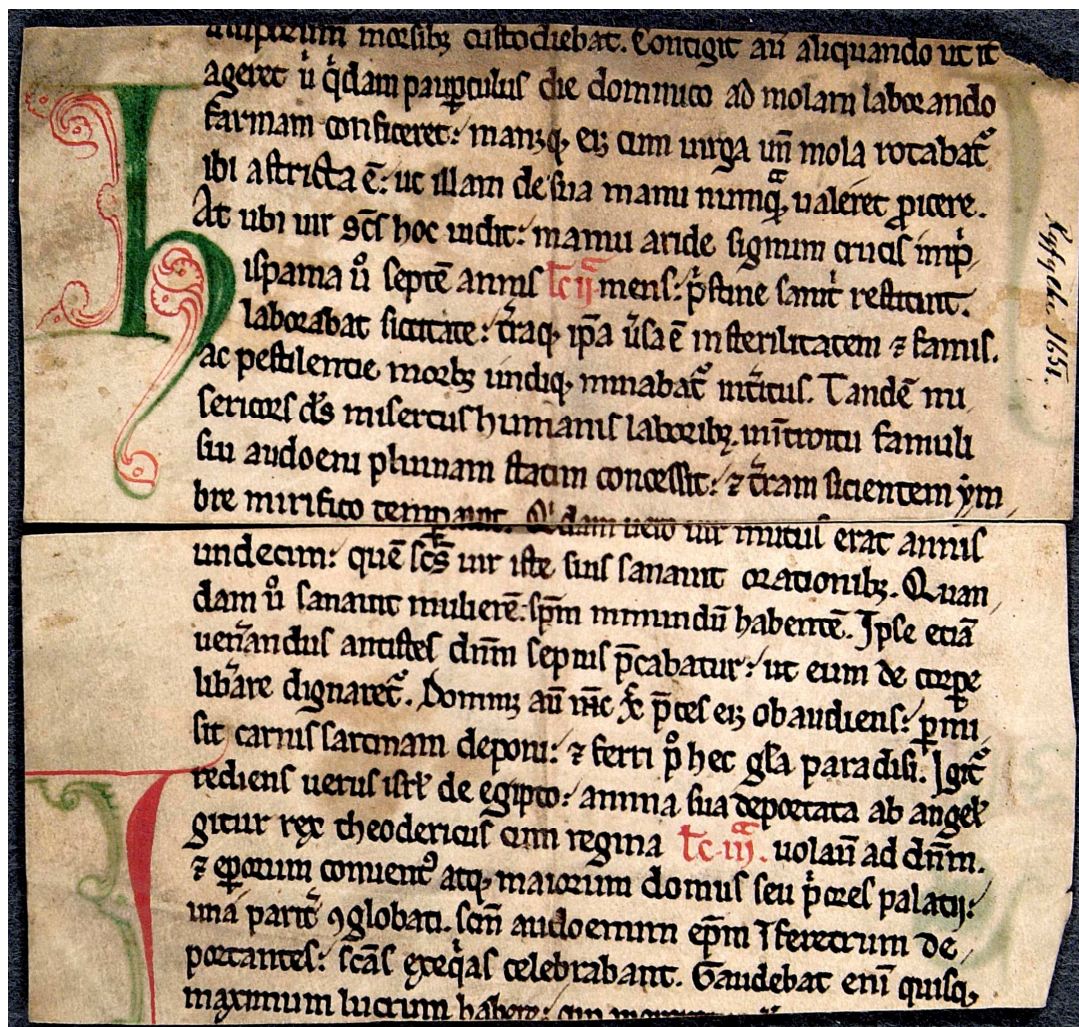 morsibꝫ custodiebat. Contigit aū aliquando ut it
ageret u̍ q̍dam paup̲culus die dominico ad molam laborando
farinam conficeret: manꝫqꝫ eiꝫ cum uirga un̄ mola rotabat᷑
ibi astricta ē: ut illam de sua manu numqͣ ualeret ꝓicere.
At ubi uir sc̄s hoc uidit: manui aride signum crucis imp̍
ispania u̾ septē annis lc̄ ijͣ mens: p̍stine sanit̍ restituit.
laborabat siccitate: t̾raqꝫ ip̄a u̾sa ē in sterilitatem ⁊ famis.
ac pestilentie morbꝫ undiqꝫ minabat᷑ int̾itus. Tandē mi
sericors ds̄ misertus humanis laboribꝫ, in int̄roitu famuli
sui audoeni pluuiam statim concessit: ⁊ t̾ram sicientem ẏm
bre mirifico temp̲auit. Q̍dam uero uir mutus erat annis
undecim: quē sc̄s uir iste suis sanauit orationibꝫ. Quan
dam u̾ sanauit mulierē: sp̄m inmundū habentē. Ipse etiā
uen̾andus antistes dn̄m sepius p̄cabatur: ut eum de corꝑe
lib̾are dignaret᷑. Dominꝫ aū iħc xp̄c p̄ces eiꝫ obaudiens: ꝑmi
sit carnis sarcinam deponi: ⁊ ferri p̾ hec gl̄a paradisi. Igit᷑
rediens uerus isrl̄ de egipto: anima sua deportata ab angel̵
gitur rex theodericus cum regina lc̄ iijͣ. uolaū ad dn̄m.
⁊ ep̄orum conuentꝰ atqꝫ maiorum domus seu p̍ores palatij:
una parit̾ ꝯglobati. sc̄m audoenum ep̄m ī feretrum de
portantes: sc̄as exeq̍as celebrabant. Gaudebat enī quisqꝫ
maximum lucrum habere:
1651.